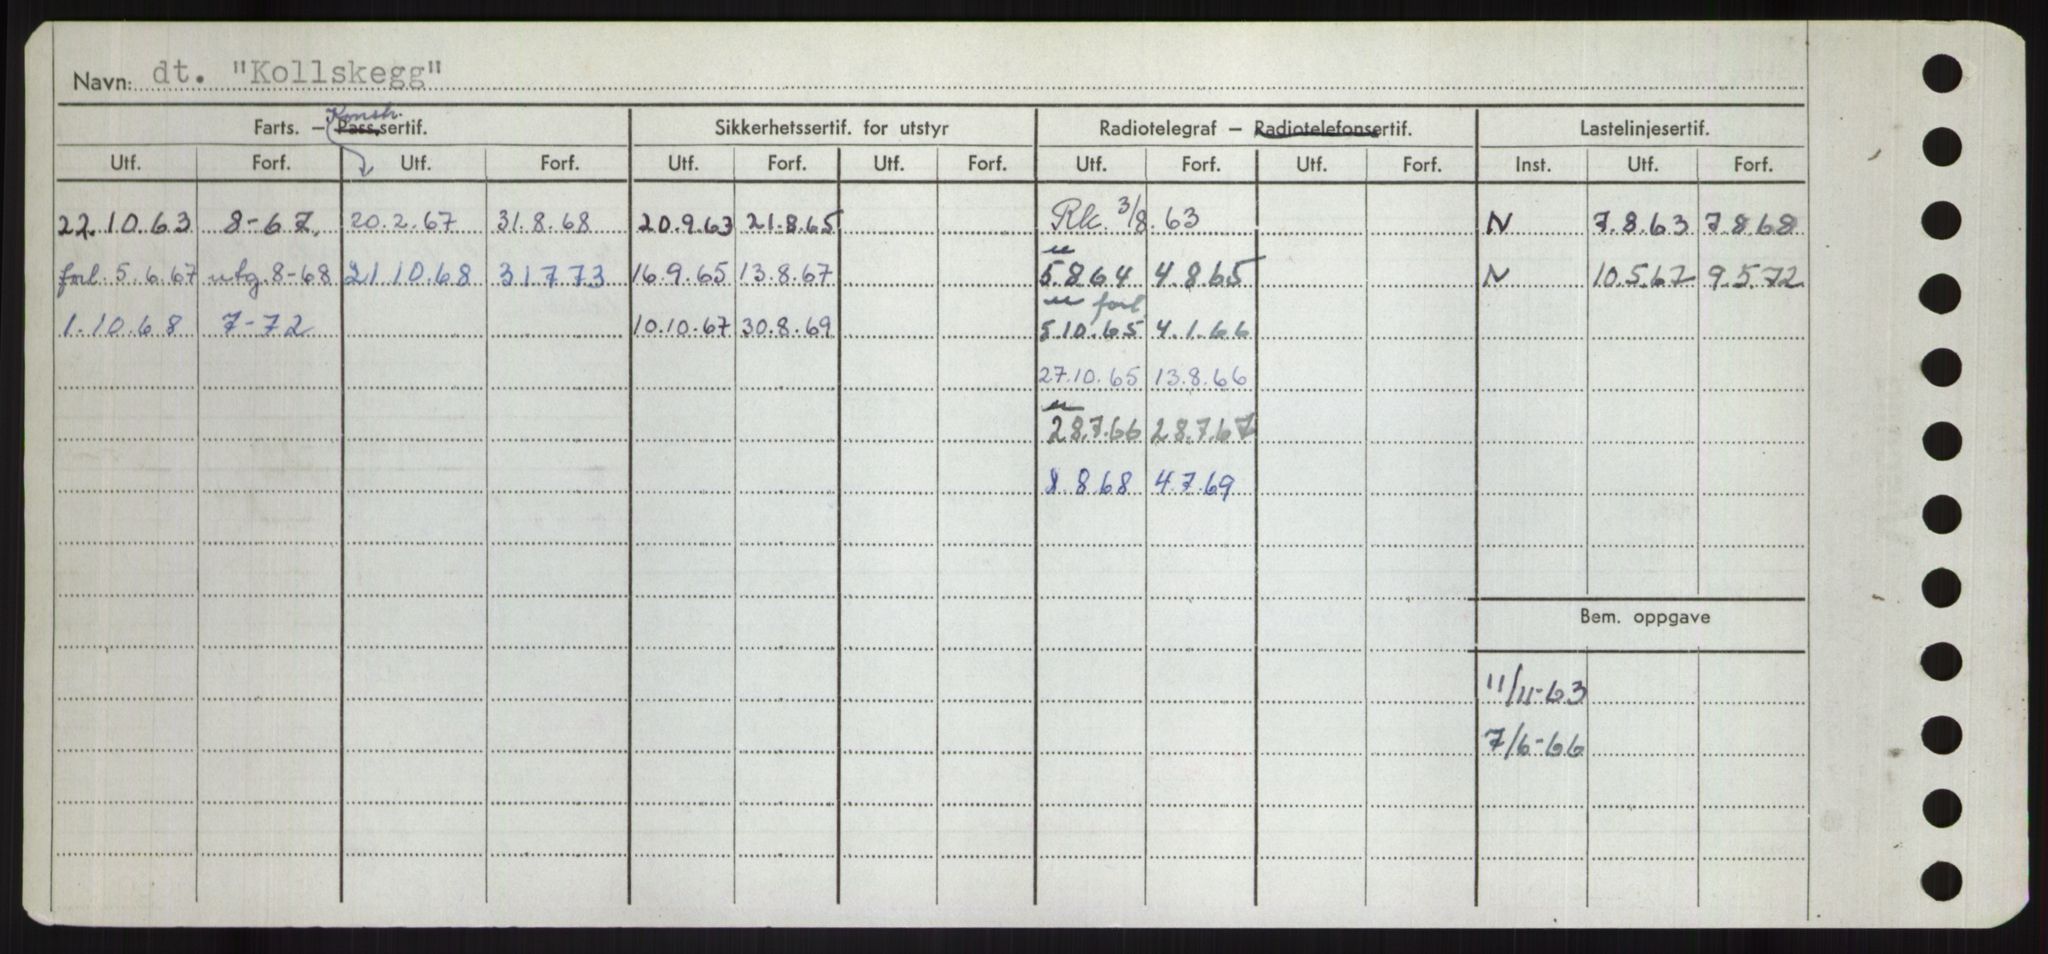 Navn: dt. "Kollskegg"
Konstr.
Farts. – Pass.sertif. Sikkerhetssertif. for utstyr Radiotelegraf – Radiotelefonsertif. Lastelinjesertif.
Utf. Forf. Utf. Forf. Utf. Forf. Utf. Forf. Utf. Forf. Utf. Forf. Inst. Utf. Forf.
22.10.63 8-67. 20.2.67 31.8.68 20.9.63 21.8.65 Rk. 3/8.63 N 7.8.63 7.8.68
forl. 5.6.67 utg. 8-68 21.10.68 31.7.73 16.9.65 13.8.67 5.8.64 4.8.65 N 10.5.67 9.5.72
forl
1.10.68 7-72 10.10.67 30.8.69 5.10.65 4.1.66
27.10.65 13.8.66
28.7.66 28.7.67
1.8.68 4.7.69
Bem. oppgave
11/11-63
7/6-66